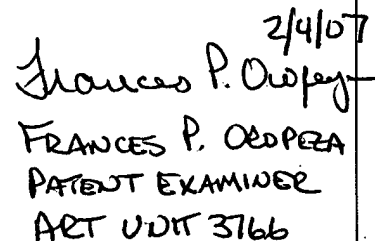 2/4/07
Frances P. Oropeza
FRANCES P. OROPEZA
PATENT EXAMINER
ART UNIT 3766